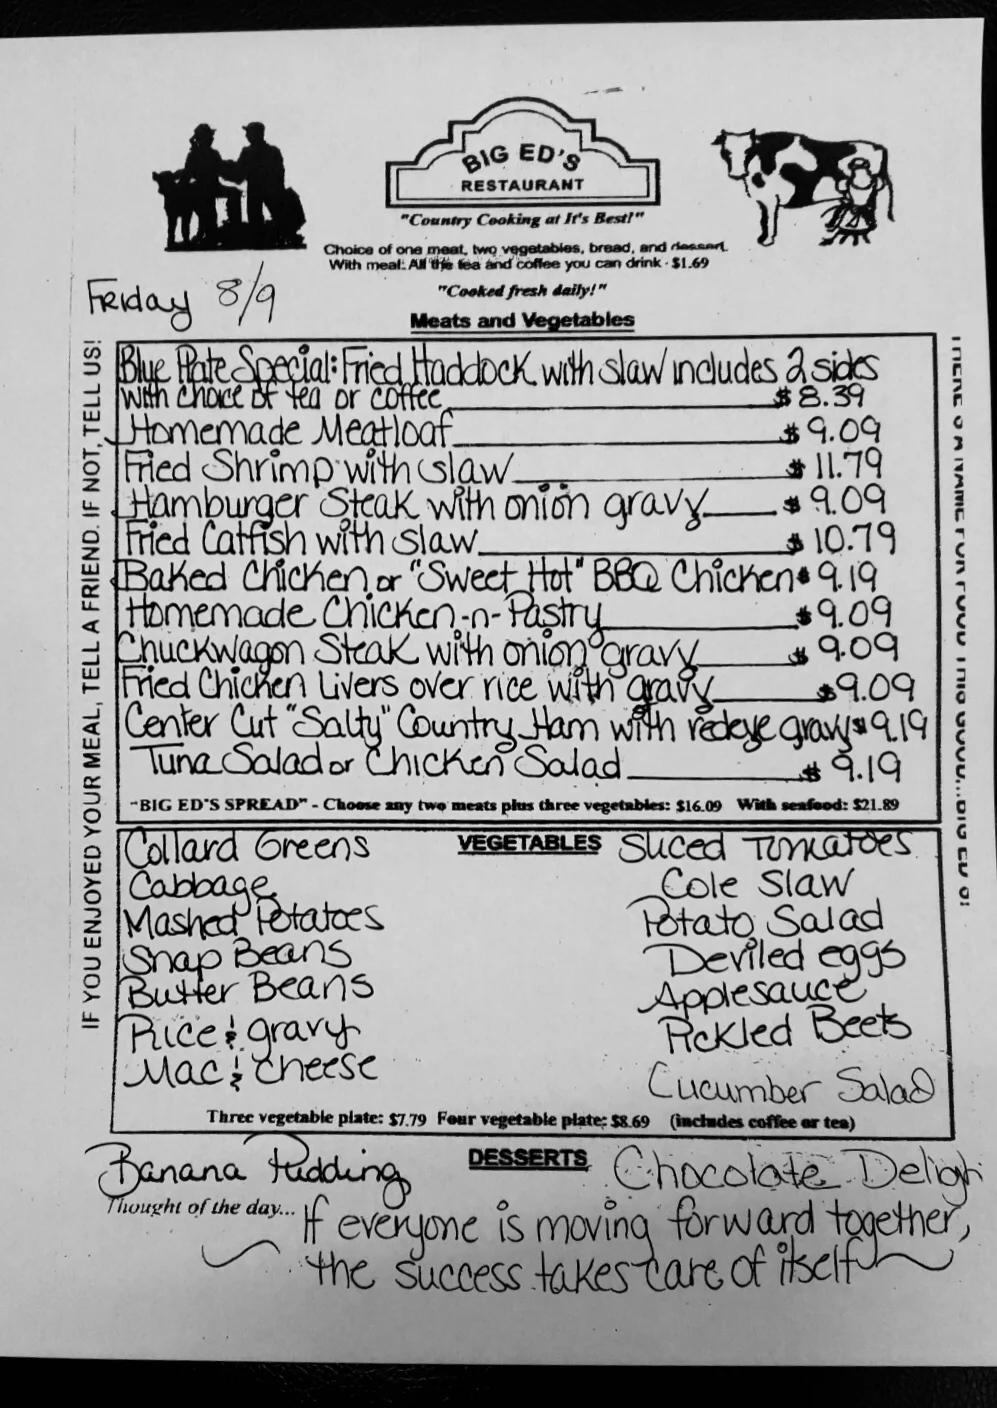 BIG ED'S
RESTAURANT
"Country Cooking at It's Best!"
Choice of one meat, two vegetables, bread, and dessert.
With meal: All the tea and coffee you can drink - $1.69
Friday 8/9
"Cooked fresh daily!"
Meats and Vegetables
Blue Plate Special: Fried Haddock with slaw includes 2 sides
with choice of tea or coffee $8.39
Homemade Meatloaf $9.09
Fried Shrimp with slaw $11.79
Hamburger Steak with onion gravy $9.09
Fried Catfish with slaw $10.79
Baked Chicken or "Sweet Hot" BBQ Chicken $9.19
Homemade Chicken-n-Pastry $9.09
Chuckwagon Steak with onion gravy $9.09
Fried Chicken Livers over rice with gravy $9.09
Center Cut "Salty" Country Ham with redeye gravy $9.19
Tuna Salad or Chicken Salad $9.19
"BIG ED'S SPREAD" - Choose any two meats plus three vegetables: $16.09 With seafood: $21.89
IF YOU ENJOYED YOUR MEAL, TELL A FRIEND. IF NOT, TELL US!
THERE'S A NAME FOR FOOD THIS GOOD...BIG ED'S!
VEGETABLES
Collard Greens
Cabbage
Mashed Potatoes
Snap Beans
Butter Beans
Rice & gravy
Mac & cheese
Sliced Tomatoes
Cole Slaw
Potato Salad
Deviled eggs
Applesauce
Pickled Beets
Cucumber Salad
Three vegetable plate: $7.79 Four vegetable plate: $8.69 (includes coffee or tea)
DESSERTS
Banana Pudding
Chocolate Deligh
Thought of the day... If everyone is moving forward together,
the success takes care of itself